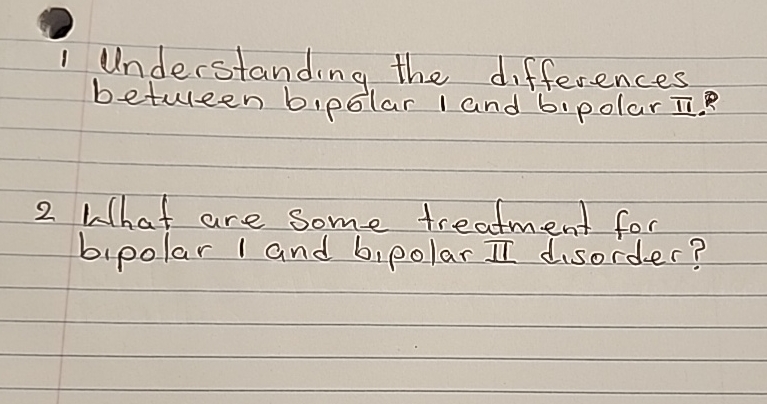 1 Understanding the differences
between bipolar I and bipolar II.?
2 What are some treatment for
bipolar I and bipolar II disorder?